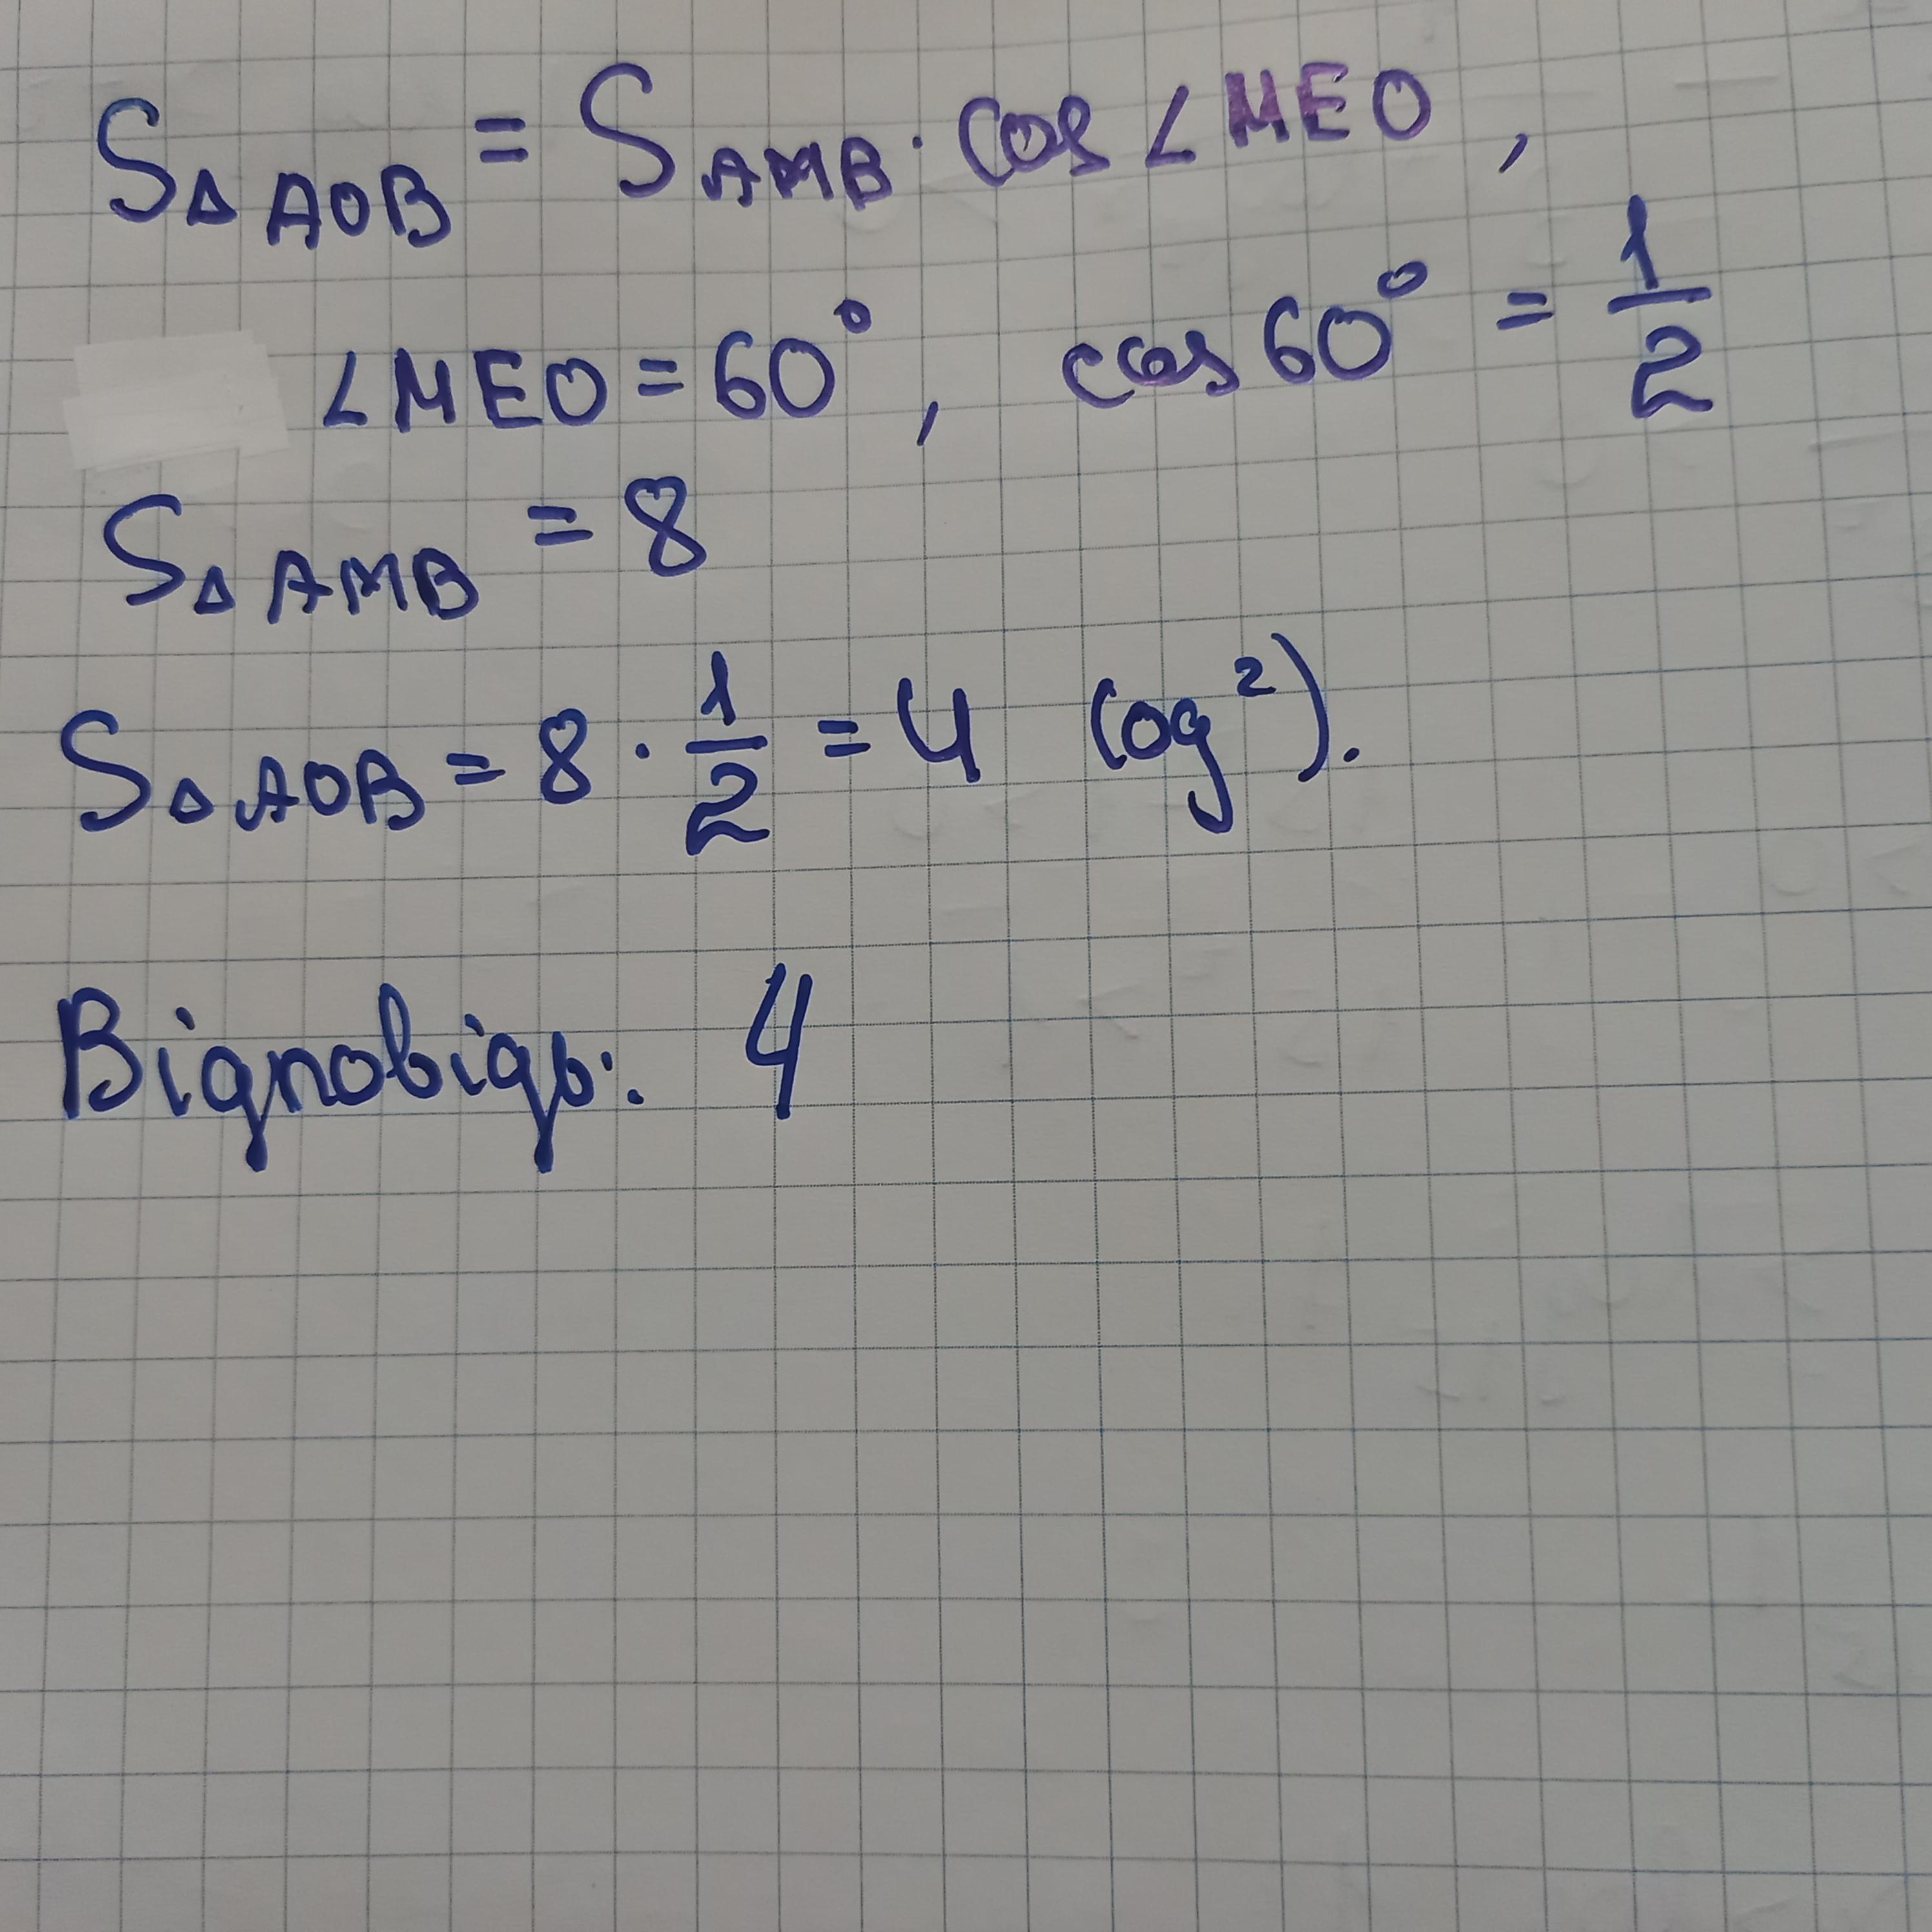 S△AOB = SAMB · cos ∠MEO,
∠MEO = 60°, cos 60° = 1/2
S△AMB = 8
S△AOB = 8 · 1/2 = 4 (од²).
Відповідь: 4